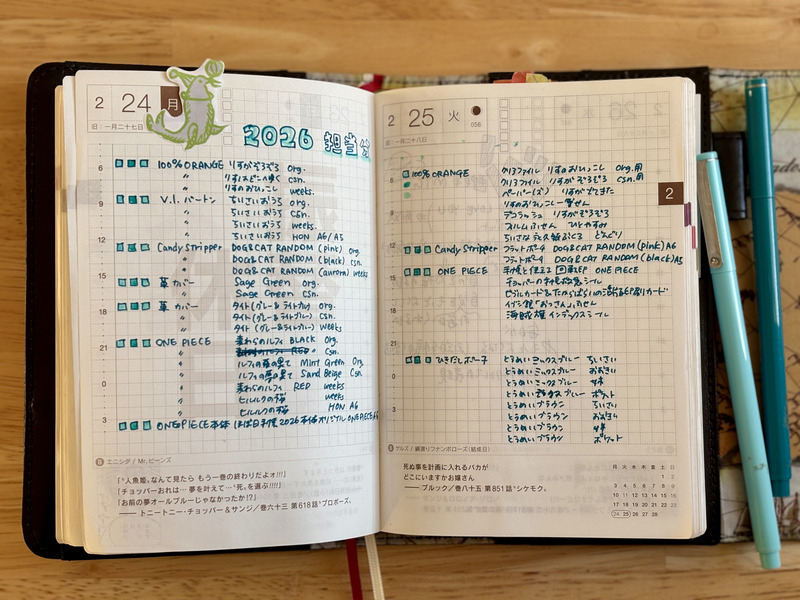 2 24 月
旧:一月二十七日
2026 担当分
6
100% ORANGE りすがぞろぞろ Org.
〃 csn.
〃 りすのおひっこし weeks.
9
V.I. パートン ちいさいおうち org.
〃 ちいさいおうち csn.
〃 ちいさいおうち weeks.
〃 ちいさいおうち HON A6/A5
12
Candy Stripper DOG&CAT RANDOM (pink) org.
〃 DOG&CAT RANDOM (black) csn.
〃 DOG&CAT RANDOM (aurora) weeks
15
革カバー Sage Green org.
〃 Sage Green csn.
革カバー タイト(グレー&ライトブルー) Org.
18
〃 タイト(グレー&ライトブルー) csn.
〃 タイト(グレー&ライトブルー) weeks
21
ONE PIECE 麦わらのルフィ BLACK Org.
〃 csn.
〃 ルフィの夢の果て Mint Green Org.
0
〃 ルフィの夢の果て Sand Beige Csn.
〃 麦わらのルフィ RED weeks
〃 ヒルルクの桜 weeks
〃 ヒルルクの桜 HON A6
3
ONE PIECE本体 ほぼ日手帳2026本体オリジナル ONE PIECE
エニシダ / Mr.ビーンズ
「“人魚姫„なんて見たら もう一巻の終わりだよォ!!!」
「チョッパーおれは…夢を叶えて…“死„を選ぶ!!!!」
「お前の夢オールブルーじゃなかったか!?」
── トニートニー・チョッパー&サンジ/巻六十三 第618話“プロポーズ„
2 25 火
056
旧:一月二十八日
6
100% ORANGE クリアファイル りすのおひっこし Org.用
クリアファイル りすがぞろぞろ csn.用
ペーパー(ズ) りすがでてきた
9
りすのおひっこし一筆せん
デコラッシュ りすがぞろぞろ
スリムふせん ひとやすみ
どんぐり
2
12
Candy Stripper フラットポーチ DOG&CAT RANDOM (pink) A6
フラットポーチ DOG&CAT RANDOM (black) A5
15
ONE PIECE 手帳で使える ONE PIECE
チョッパーの シール
18
海賊旗 インデックスシール
21
ひきだしポーチ とうめいミックスブルー ちいさい
とうめいミックスブルー おおきい
0
とうめいミックスブルー
とうめいミックスブルー ポケット
とうめいブラウン ちいさい
とうめいブラウン おおきい
3
とうめいブラウン
とうめいブラウン ポケット
ゲルズ / 綱渡りフナンボローズ(結成日)
死ぬ事を計画に入れるバカが
どこにいますかお嬢さん
── ブルック/巻八十五 第851話“シケモク„
月 火 水 木 金 土 日
1 2
3 4 5 6 7 8 9
10 11 12 13 14 15 16
17 18 19 20 21 22 23
24 25 26 27 28